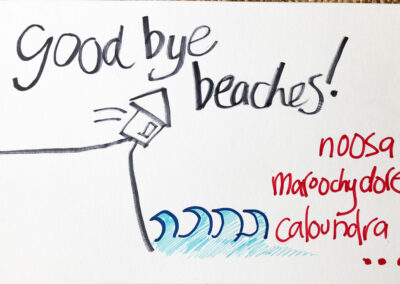 Good bye
beaches!
noosa
maroochydore
caloundra
...